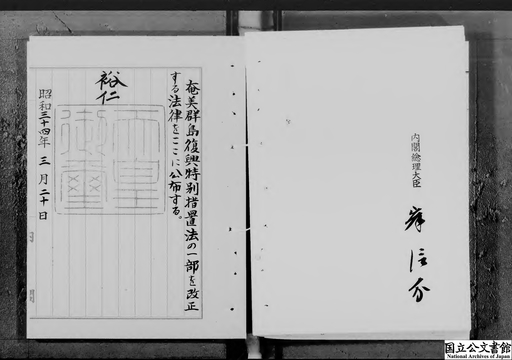 奄美群島復興特別措置法の一部を改正
する法律をここに公布する。
裕仁
天皇
御璽
昭和三十四年三月二十日
内閣総理大臣
岸信介
国立公文書館
National Archives of Japan